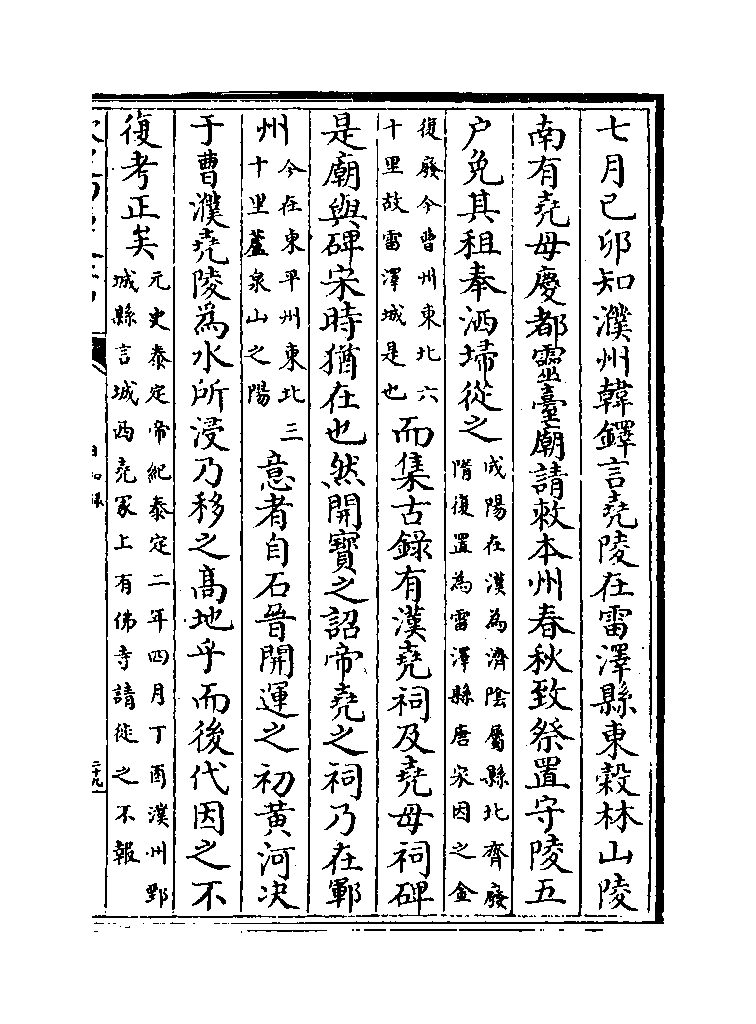 七月己卯知濮州韓鐸言堯陵在雷澤縣東穀林山陵
南有堯母慶都靈臺廟請敕本州春秋致祭置守陵五
户免其租奉洒埽從之
成陽在漢為濟隂屬縣北齊廢
隋復置為雷澤縣唐宋因之金
復廢今曹州東北六
十里故雷澤城是也
而集古錄有漢堯祠及堯母祠碑
是廟與碑宋時猶在也然開寶之詔帝堯之祠乃在鄆
州
今在東平州東北三
十里蘆泉山之陽
意者自石晉開運之初黃河決
于曹濮堯陵為水所浸乃移之髙地乎而後代因之不
復考正矣
元史泰定帝紀泰定二年四月丁酉濮州鄄
城縣言城西堯冢上有佛寺請徙之不報
日知録
二十九